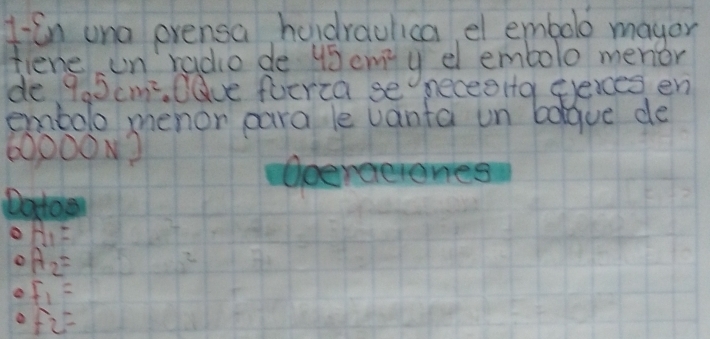 1-En una prensa huidraulica el embolo mayor
tiene un radio de 45 cm² y el embolo menor
de 9,5 cm². ¿Que fuerza se necesita ejerces en
embolo menor para le vanta un bloque de
60000N?
Operaciones
Datos
• A₁=
• A₂=
• F₁=
• F₂=